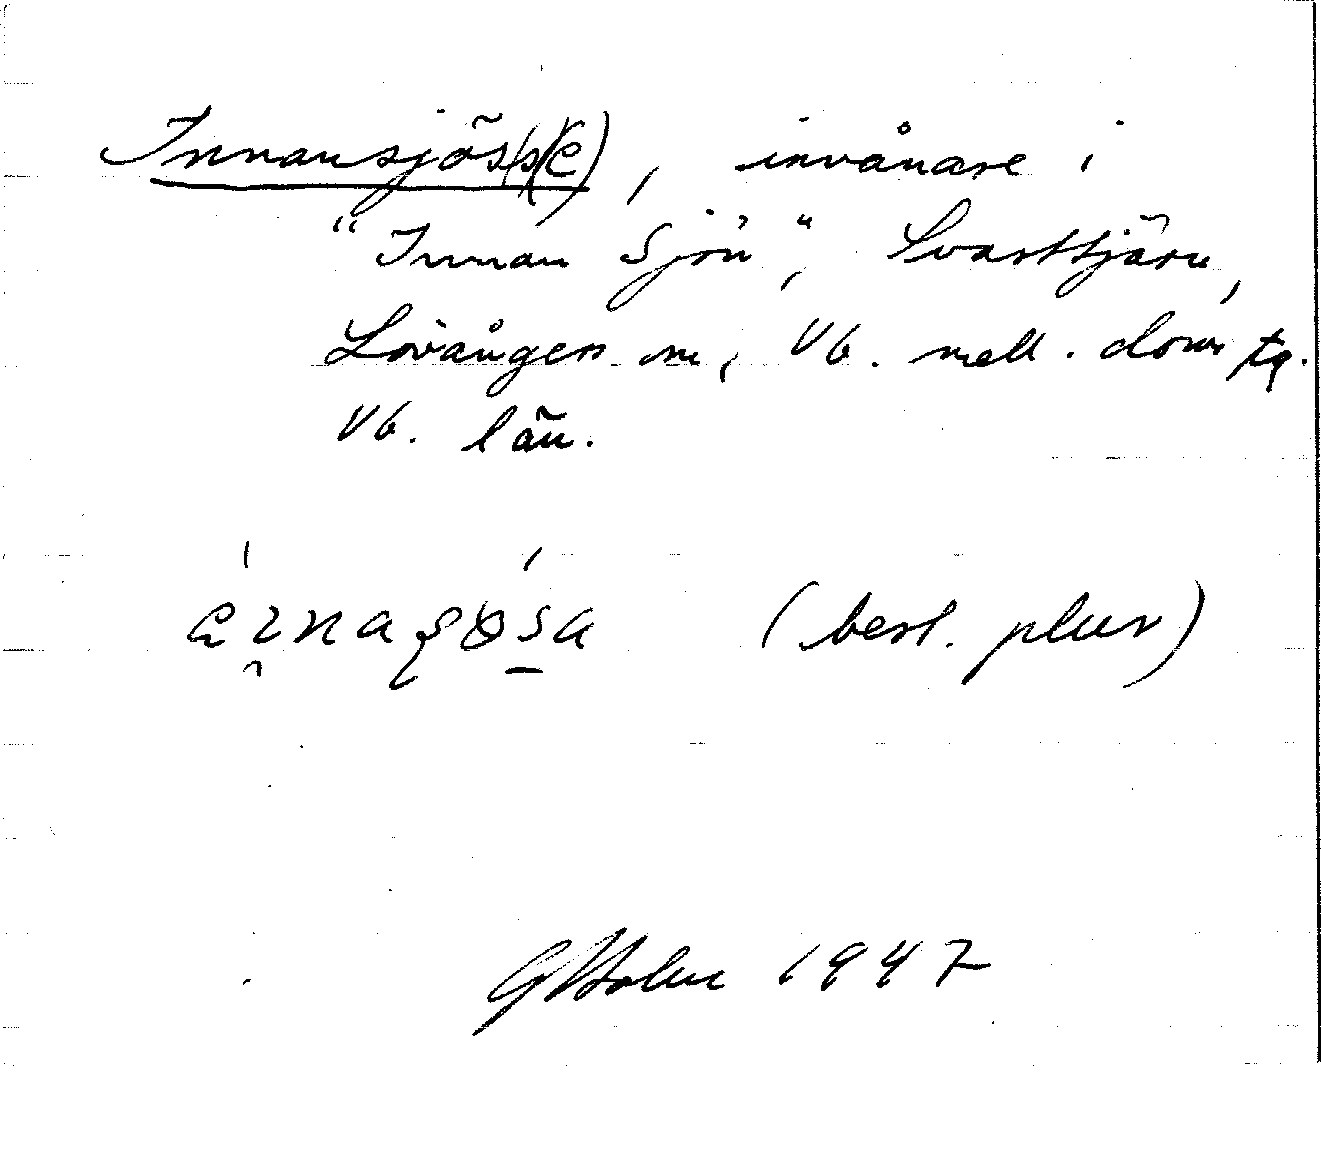 Innansjös(s)(e), invånare i
"Innan Sjön", Svarttjärn,
Lövånger sn, Vb. mell. doms tg.
Vb. län.
(best. plur)
G Holm 1947